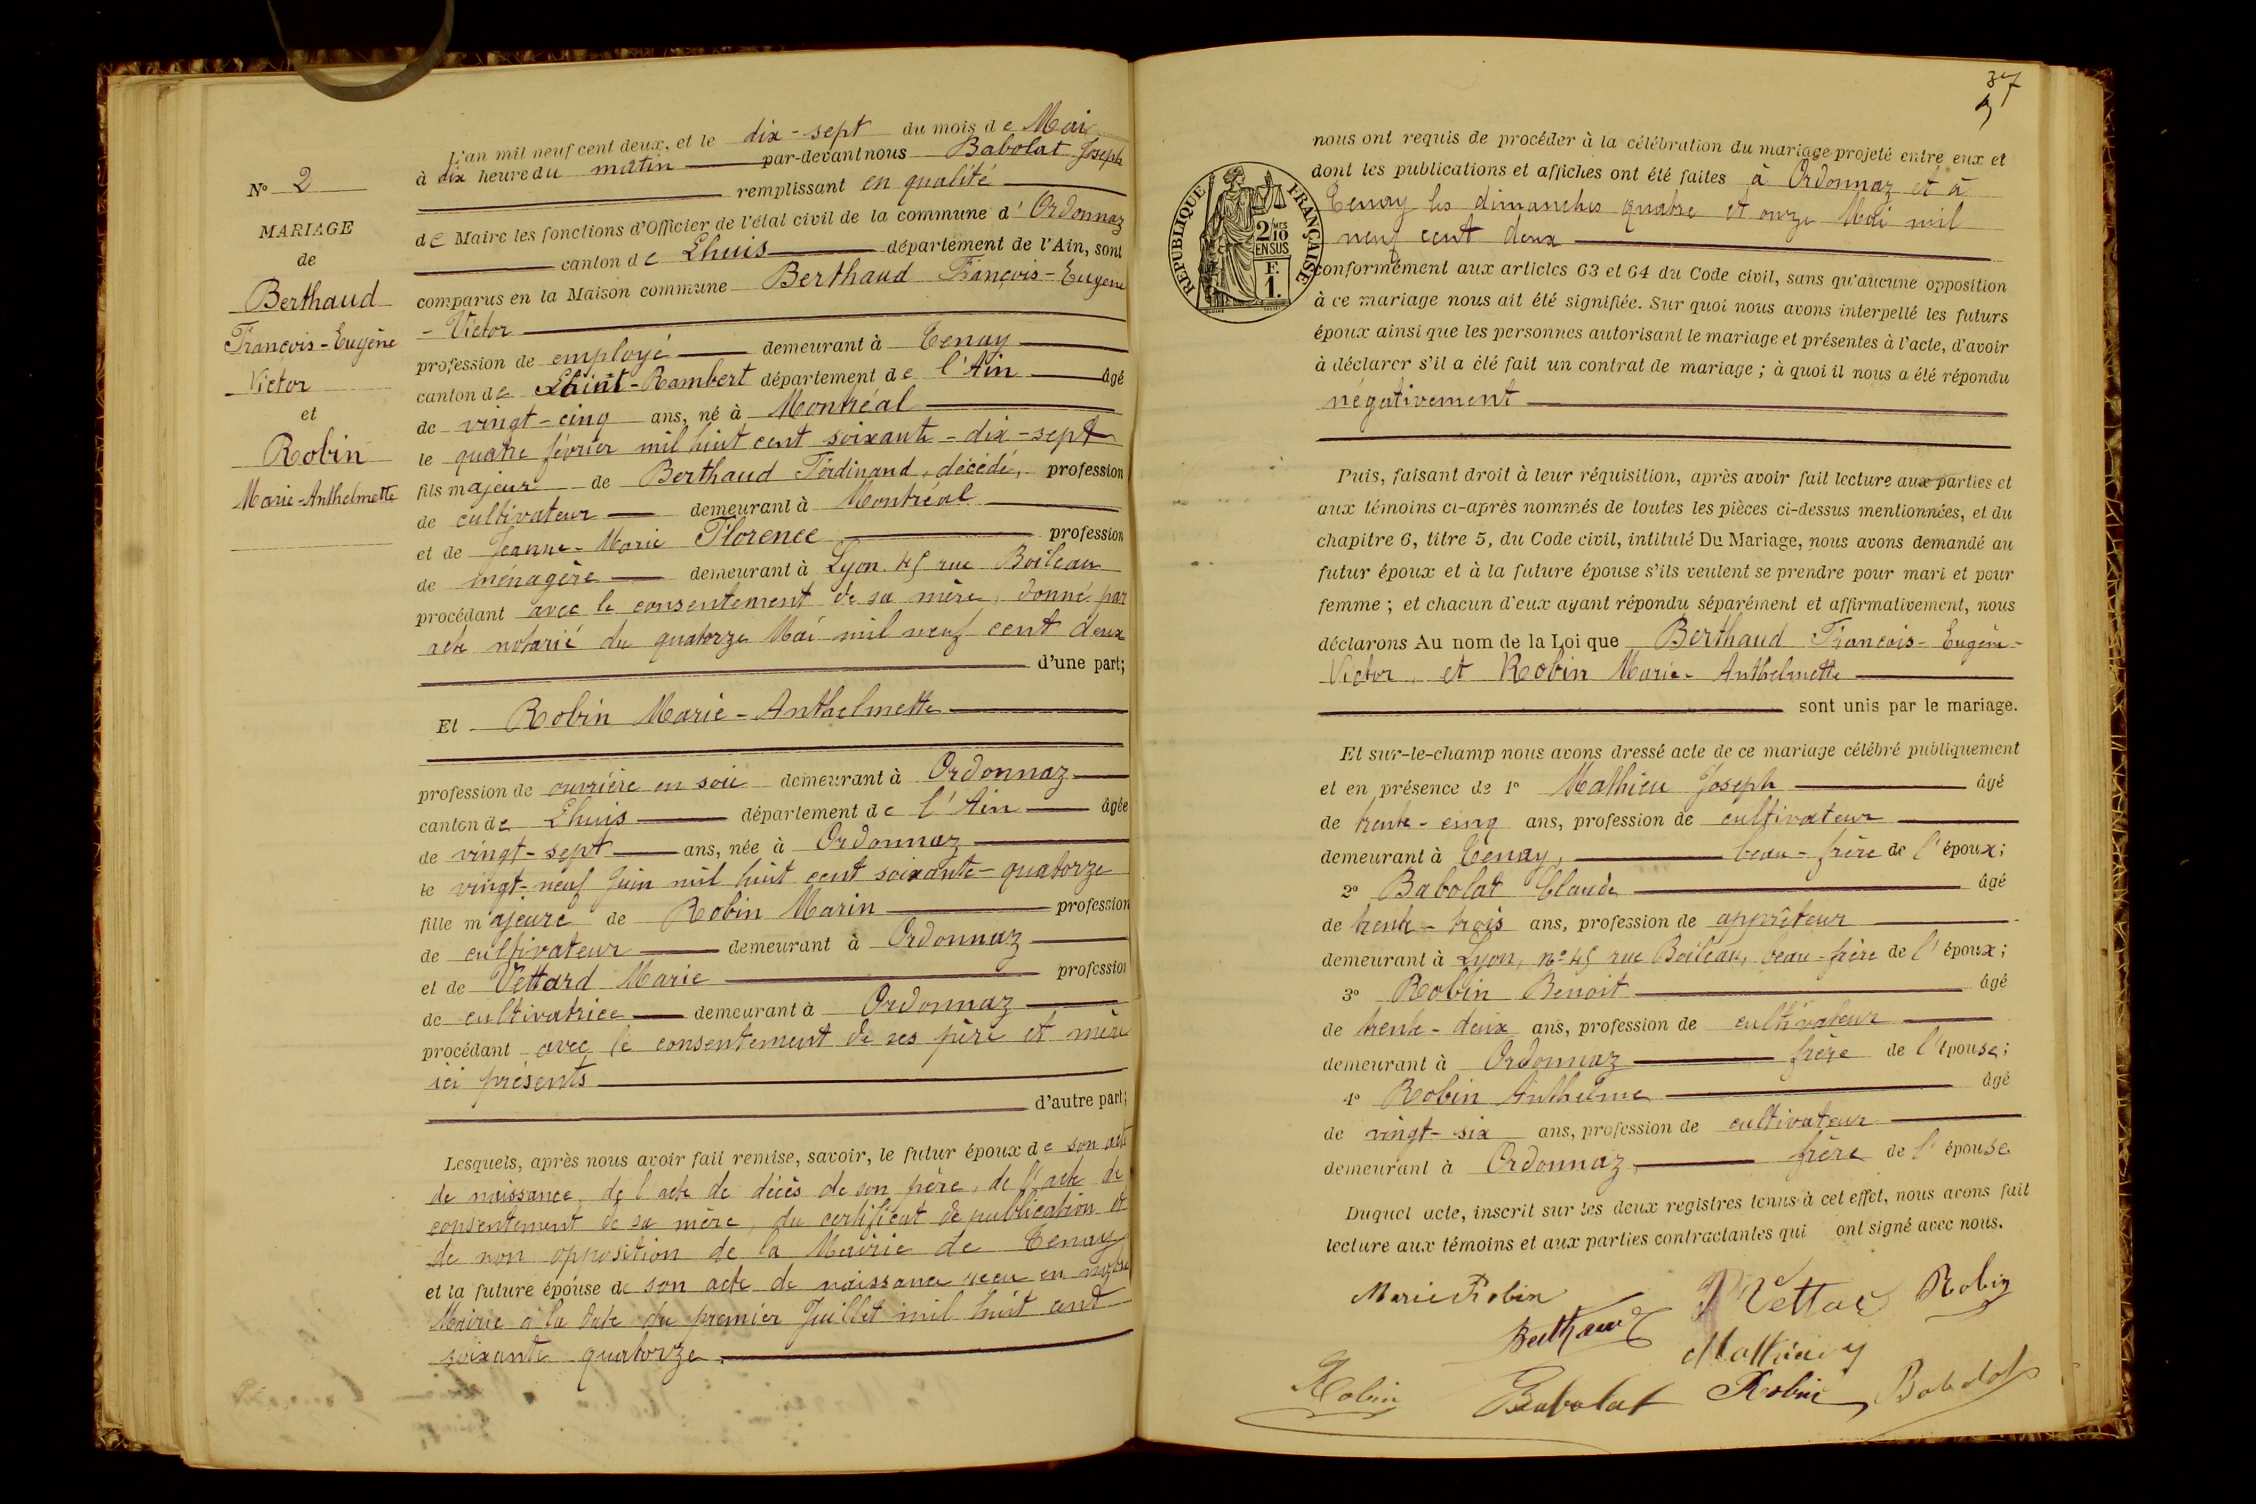 N° 2
MARIAGE
de
Berthaud
François-Eugène
Victor
et
Robin
Marie-Anthelmette
L'an mil neuf cent deux, et le dix-sept du mois de Mai
à dix heure du matin par-devant nous Babolat Joseph
remplissant en qualité
de Maire les fonctions d'Officier de l'état civil de la commune d'Ordonnaz
canton de Lhuis département de l'Ain, sont
comparus en la Maison commune Berthaud François-Eugène
-Victor
profession de employé demeurant à Tenay
canton de Saint-Rambert département de l'Ain âgé
de vingt-cinq ans, né à Montréal
le quatre février mil huit cent soixante-dix-sept
fils majeur de Berthaud Ferdinand, décédé, profession
de cultivateur demeurant à Montréal
et de Jeanne-Marie Florence profession
de ménagère demeurant à Lyon 45 rue Boileau
procédant avec le consentement de sa mère, donné par
acte notarié du quatorze Mai mil neuf cent deux
d'une part;
Et Robin Marie-Anthelmette
profession de ouvrière en soie demeurant à Ordonnaz
canton de Lhuis département de l'Ain âgée
de vingt-sept ans, née à Ordonnaz
le vingt-neuf Juin mil huit cent soixante-quatorze
fille majeure de Robin Marin profession
de cultivateur demeurant à Ordonnaz
et de Vettard Marie profession
de cultivatrice demeurant à Ordonnaz
procédant avec le consentement de ses père et mère
ici présents
d'autre part;
Lesquels, après nous avoir fait remise, savoir, le futur époux de son acte
de naissance, de l'acte de décès de son père, de l'acte de
consentement de sa mère, du certificat de publication et
de non opposition de la Mairie de Tenay
et la future épouse de son acte de naissance reçu en notre
Mairie à la date du premier Juillet mil huit cent
soixante quatorze.
37
nous ont requis de procéder à la célébration du mariage projeté entre eux et
dont les publications et affiches ont été faites à Ordonnaz et à
Tenay les dimanches quatre et onze Mai mil
neuf cent deux
RÉPUBLIQUE FRANÇAISE
2/10 MES
EN SUS
F.
1.
conformément aux articles 63 et 64 du Code civil, sans qu'aucune opposition
à ce mariage nous ait été signifiée. Sur quoi nous avons interpellé les futurs
époux ainsi que les personnes autorisant le mariage et présentes à l'acte, d'avoir
à déclarer s'il a été fait un contrat de mariage ; à quoi il nous a été répondu
négativement
Puis, faisant droit à leur réquisition, après avoir fait lecture aux parties et
aux témoins ci-après nommés de toutes les pièces ci-dessus mentionnées, et du
chapitre 6, titre 5, du Code civil, intitulé Du Mariage, nous avons demandé au
futur époux et à la future épouse s'ils veulent se prendre pour mari et pour
femme ; et chacun d'eux ayant répondu séparément et affirmativement, nous
déclarons Au nom de la Loi que Berthaud François-Eugène-
Victor, et Robin Marie-Anthelmette
sont unis par le mariage.
Et sur-le-champ nous avons dressé acte de ce mariage célébré publiquement
et en présence de 1° Mathieu Joseph âgé
de trente-cinq ans, profession de cultivateur
demeurant à Tenay, beau-frère de l'époux;
2° Babolat Claude âgé
de trente-trois ans, profession de apprêteur
demeurant à Lyon, n° 45 rue Boileau, beau-frère de l'époux;
3° Robin Benoit âgé
de trente-deux ans, profession de cultivateur
demeurant à Ordonnaz frère de l'épouse;
4° Robin Anthelme âgé
de vingt-six ans, profession de cultivateur
demeurant à Ordonnaz, frère de l'épouse
Duquel acte, inscrit sur les deux registres tenus à cet effet, nous avons fait
lecture aux témoins et aux parties contractantes qui ont signé avec nous.
Marie Robin Vettard Robin
Berthaud Mathieu
Robin Babolat Robin Babolat